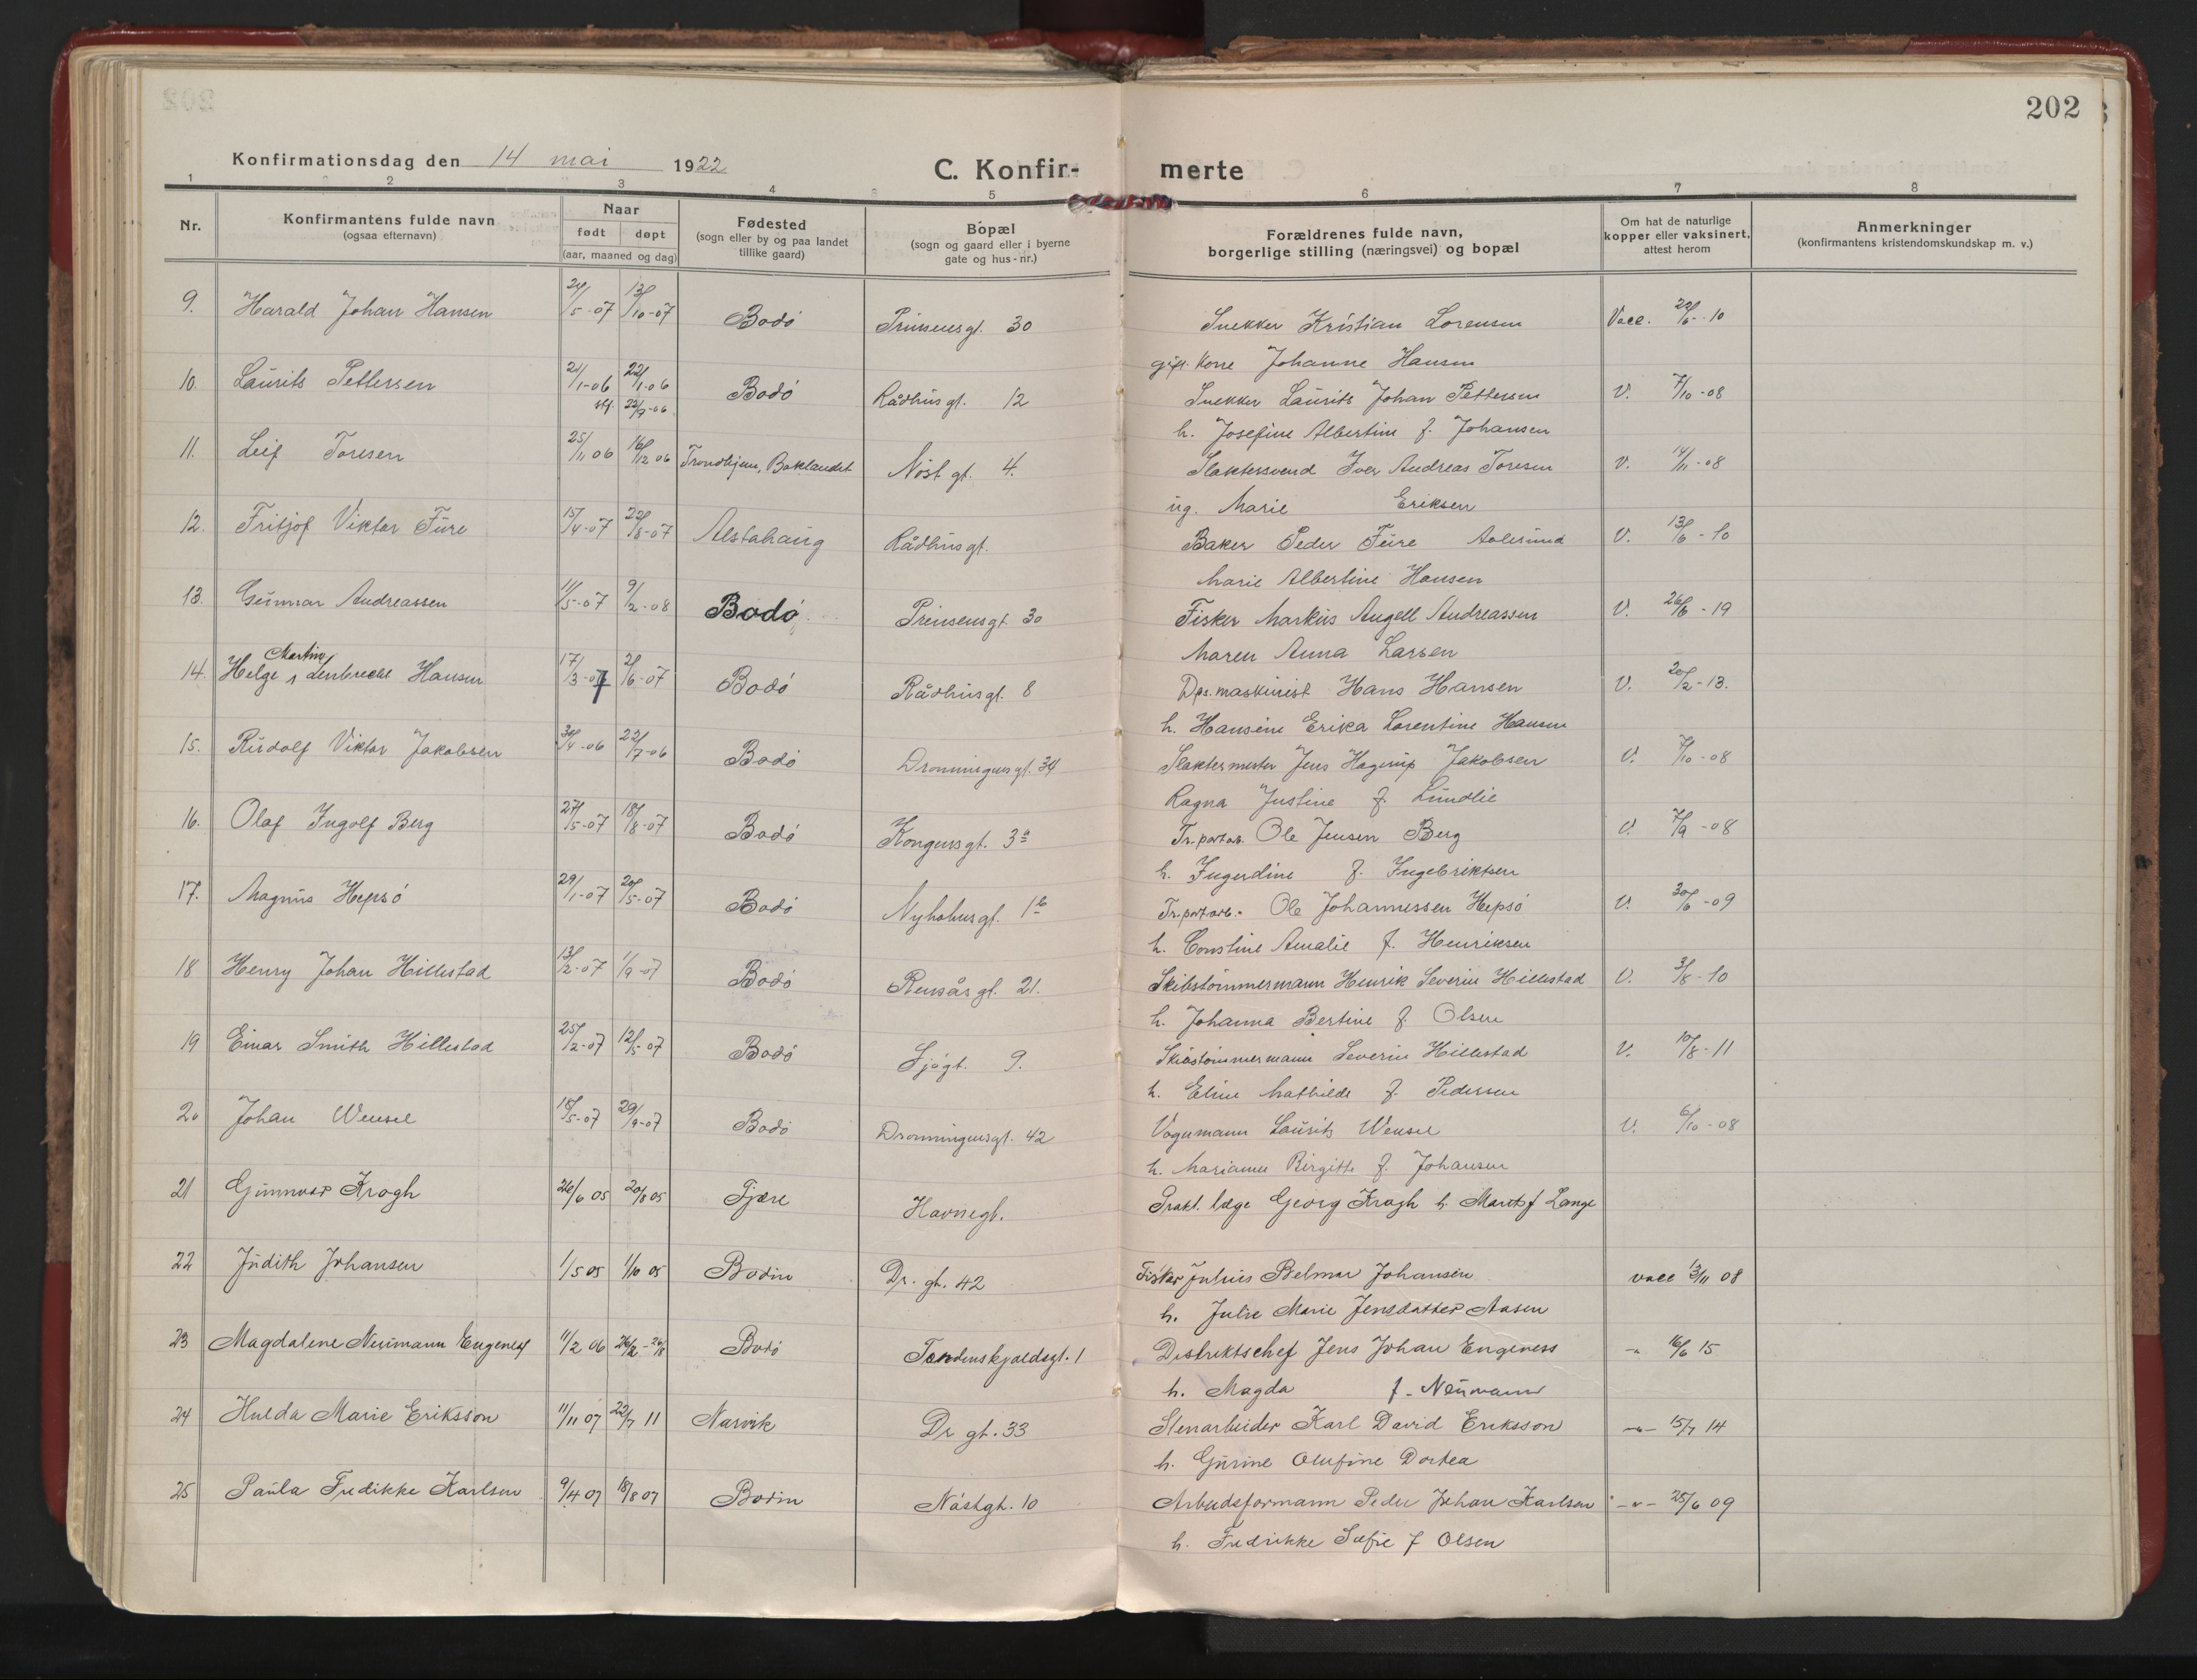 202
Konfirmationsdag den 14 mai 1922
C. Konfir- merte
1 2 3 4 5 6 7 8
Nr.
Konfirmantens fulde navn
(ogsaa efternavn)
Naar
født døpt
(aar, maaned og dag)
Fødested
(sogn eller by og paa landet
tillike gaard)
Bopæl
(sogn og gaard eller i byerne
gate og hus-nr.)
Forældrenes fulde navn,
borgerlige stilling (næringsvei) og bopæl
Om hat de naturlige
kopper eller vaksinert,
attest herom
Anmerkninger
(konfirmantens kristendomskundskap m. v.)
9. Harald Johan Hansen 24/5-07 13/10-07 Bodö Prinsensgt. 30 Snekker Kristian Lorensen Vacc. 22/6-10
gift. Kone Johanne Hansen
10. Laurits Pettersen 24/1-06 22/1-06 Bodö Rådhusgt. 12 Snekker Laurits Johan Pettersen V. 7/10-08
stf. 22/7-06
h. Josefine Albertine f. Johansen
11. Leif Toresen 25/11 06 16/12 06 Trondhjem, Baklandet Nöst gt. 4. Slaktersvend Iver Andreas Toresen V. 14/11-08
ug. Marie Eriksen
12. Fritjof Viktor Fure 15/4-07 22/8-07 Alstahaug Rådhusgt. Baker Peder Fure Aalesund V. 13/6-10
Marie Albertine Hansen
13. Gunnar Andreassen 11/5-07 9/2-08 Bodö Prinsensgt. 30 Fisker Markus Angell Andreassen V. 26/6-19
Maren Anna Larsen
Martin
14. Helge Hansen 17/3-07 2/6-07 Bodö Rådhusgt. 8 Dps. maskinist Hans Hansen V. 20/2-13.
h. Hansine Erika Lorentine Hansen
15. Rudolf Viktor Jakobsen 30/4-06 22/7-06 Bodö Dronningensgt. 34 Slaktermester Jens Hagerup Jakobsen V. 7/10-08
Ragna Justine f. Lundlie
16. Olaf Ingolf Berg 27/5-07 18/8-07 Bodö Kongensgt. 3a Tr.portarb. Ole Jensen Berg V. 7/9-08
h. Ingerdine f. Ingebriktsen
17. Magnus Hepsö 29/1-07 20/5-07 Bodö Nyholmsgt. 1b Tr.portarb. Ole Johannessen Hepsö V. 30/6-09
h. Constine Amalie f. Henriksen
18 Henry Johan Hillestad 13/2-07 1/9-07 Bodö Rensåsgt. 21. Skibstömmermann Henrik Severin Hillestad V. 3/8-10
h. Johanna Bertine f. Olsen
19 Einar Smith Hillestad 25/2-07 12/5-07 Bodö Sjögt. 9. Skibstömmermann Severin Hillestad V. 10/8-11
h. Eline Mathilde f. Pedersen
20 Johan Wensel 18/5-07 29/9-07 Bodö Dronningensgt. 42 Vognmann Laurits Wensel V. 6/10-08
h. Marianne Birgitte f. Johansen
21 Gunnvor Krogh 26/6 05 20/8 05 Fjære Havnegt. Prakt. læge Georg Krogh h. Marit f Lange
22 Judith Johansen 1/5 05 1/10 05 Bodin Dr. gt. 42 Fisker Julius Belmar Johansen vacc 13/11 08
h. Julie Marie Jensdatter Aasen
23 Magdalene Neumann Engeness 11/2 06 Bodö Tordenskjoldsgt. 1 Distriktschef Jens Johan Engeness -"- 16/6 15
h. Magda f. Neumann
24 Hulda Marie Eriksson 11/11 07 22/7 11 Narvik Dr gt. 33 Stenarbeider Karl David Eriksson -"- 15/7 14
h. Gurine Olufine Dortea
25 Paula Fredikke Karlsen 9/4 07 18/8 07 Bodin Nöstgt. 10 Arbeidsformann Peder Johan Karlsen -"- 25/6 09
h. Fredrikke Sofie f Olsen